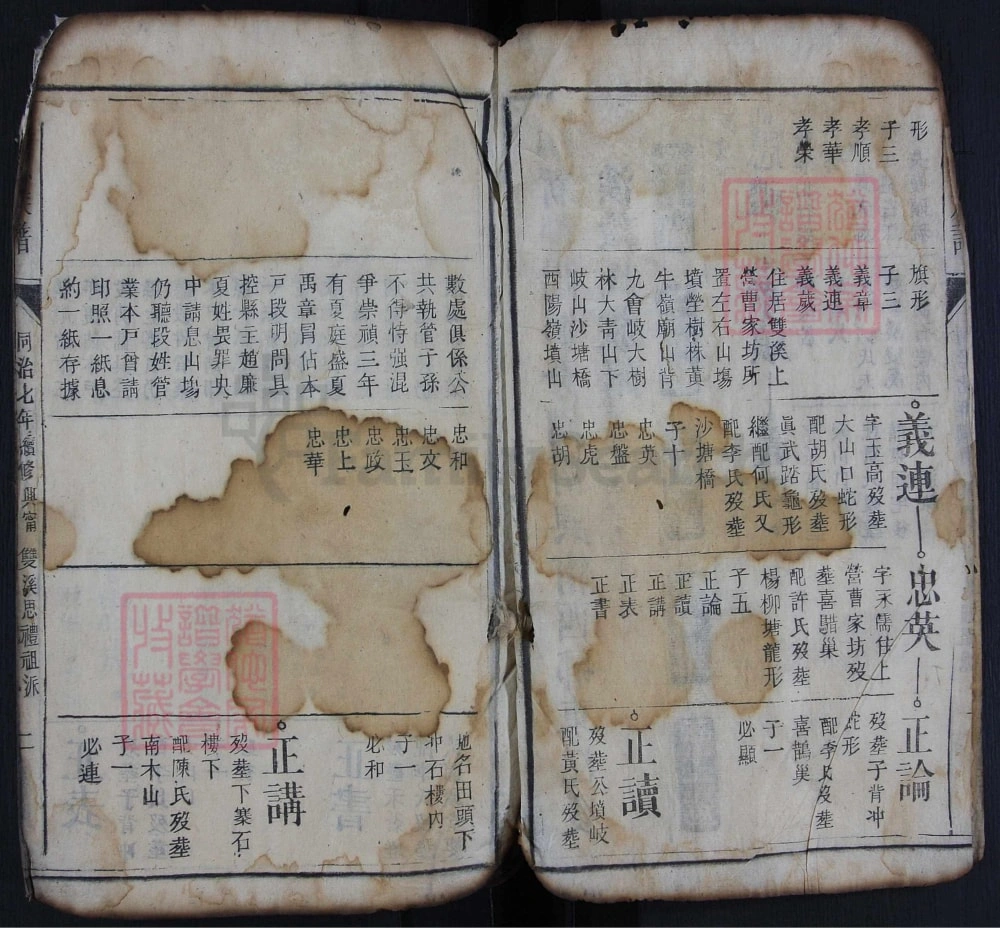 形
子三
孝順
孝華
孝榮
旗形
子三
義富
義連
義歲
住居雙溪上
營曹家坊所
置左右山塲
墳塋樹株黃
牛嶺廟山背
九會岐大樹
林大青山下
岐山沙塘橋
酉陽嶺墳山
義連
字玉高歿塟
大山口蛇形
配胡氏歿塟
眞武踏龜形
繼配何氏又
配李氏歿塟
沙塘橋
子十
忠英
忠盤
忠虎
忠胡
忠英
營曹家坊歿
塟喜鵲巢
配許氏歿塟
楊柳塘龍形
子五
正論
正讀
正講
正表
正書
正論
歿塟子背冲
蛇形
配李氏歿塟
喜鵲巢
子一
必顯
正讀
歿塟公墳岐
配黃氏歿塟
地名田頭下
冲石樓內
子一
必和
數處俱係公
共執管子孫
不得恃强混
爭崇禎三年
有夏庭盛夏
禹章冒佔本
戸段明問具
控縣主趙廉
夏姓畏罪央
中請息山塲
仍聽段姓管
業本戸曾請
印照一紙息
約一紙存據
忠和
忠文
忠玉
忠政
忠上
忠華
正講
歿塟下寨石
樓下
配陳氏歿塟
南木山
子一
必連
譜
同治七年續修興甯
雙溪思禮祖派
一